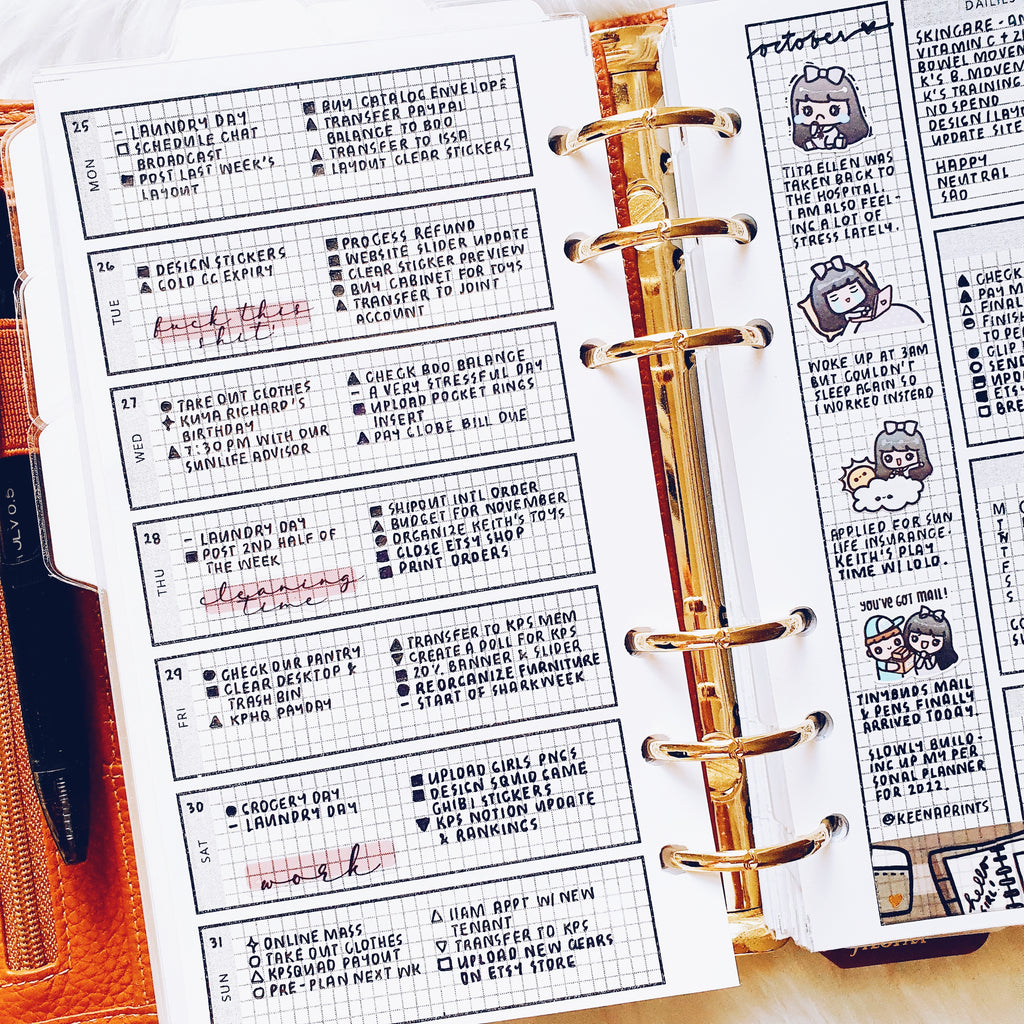 25
MON
- LAUNDRY DAY
SCHEDULE CHAT
BROADCAST
POST LAST WEEK'S
LAYOUT
BUY CATALOG ENVELOPE
TRANSFER PAYPAL
BALANCE TO BDO
TRANSFER TO ISSA
LAYOUT CLEAR STICKERS
26
TUE
DESIGN STICKERS
GOLD CC EXPIRY
fuck this
shit
PROCESS REFUND
WEBSITE SLIDER UPDATE
CLEAR STICKER PREVIEW
BUY CABINET FOR TOYS
TRANSFER TO JOINT
ACCOUNT
27
WED
TAKE OUT CLOTHES
KUYA RICHARD'S
BIRTHDAY
7:30 PM WITH OUR
SUNLIFE ADVISOR
CHECK BDO BALANCE
- A VERY STRESSFUL DAY
UPLOAD POCKET RINGS
INSERT
PAY GLOBE BILL DUE
28
THU
- LAUNDRY DAY
POST 2ND HALF OF
THE WEEK
cleaning
time
SHIPOUT INTL ORDER
BUDGET FOR NOVEMBER
ORGANIZE KEITH'S TOYS
CLOSE ETSY SHOP
PRINT ORDERS
29
FRI
CHECK OUR PANTRY
CLEAR DESKTOP &
TRASH BIN
KPHQ PAYDAY
TRANSFER TO KPS MEM
CREATE A DOLL FOR KPS
20% BANNER & SLIDER
REORGANIZE FURNITURE
- START OF SHARKWEEK
30
SAT
GROCERY DAY
- LAUNDRY DAY
work
UPLOAD GIRLS PNGS
DESIGN SQUID GAME
GHIBI STICKERS
KPS NOTION UPDATE
& RANKINGS
31
SUN
ONLINE MASS
TAKE OUT CLOTHES
KPSQUAD PAYOUT
PRE-PLAN NEXT WK
11AM APPT W/ NEW
TENANT
TRANSFER TO KPS
UPLOAD NEW GEARS
ON ETSY STORE
october
TITA ELLEN WAS
TAKEN BACK TO
THE HOSPITAL.
I AM ALSO FEEL-
ING A LOT OF
STRESS LATELY.
WOKE UP AT 3AM
BUT COULDN'T
SLEEP AGAIN SO
I WORKED INSTEAD
APPLIED FOR SUN
LIFE INSURANCE.
KEITH'S PLAY
TIME W/ LOLO.
YOU'VE GOT MAIL!
TINYBUDS MAIL
& PENS FINALLY
ARRIVED TODAY.
SLOWLY BUILD-
ING UP MY PER
SONAL PLANNER
FOR 2022.
@KEENAPRINTS
hello,
DAILIES
SKINCARE - AN
VITAMIN C + Z
BOWEL MOVEM
K'S B. MOVEM
K'S TRAINING
NO SPEND
DESIGN / LAYO
UPDATE SITE
HAPPY
NEUTRAL
SAD
CHECK
PAY M
FINAL
FINISH
TO PE
CLIP
SEND
UPD
ETS
BRE
0.5